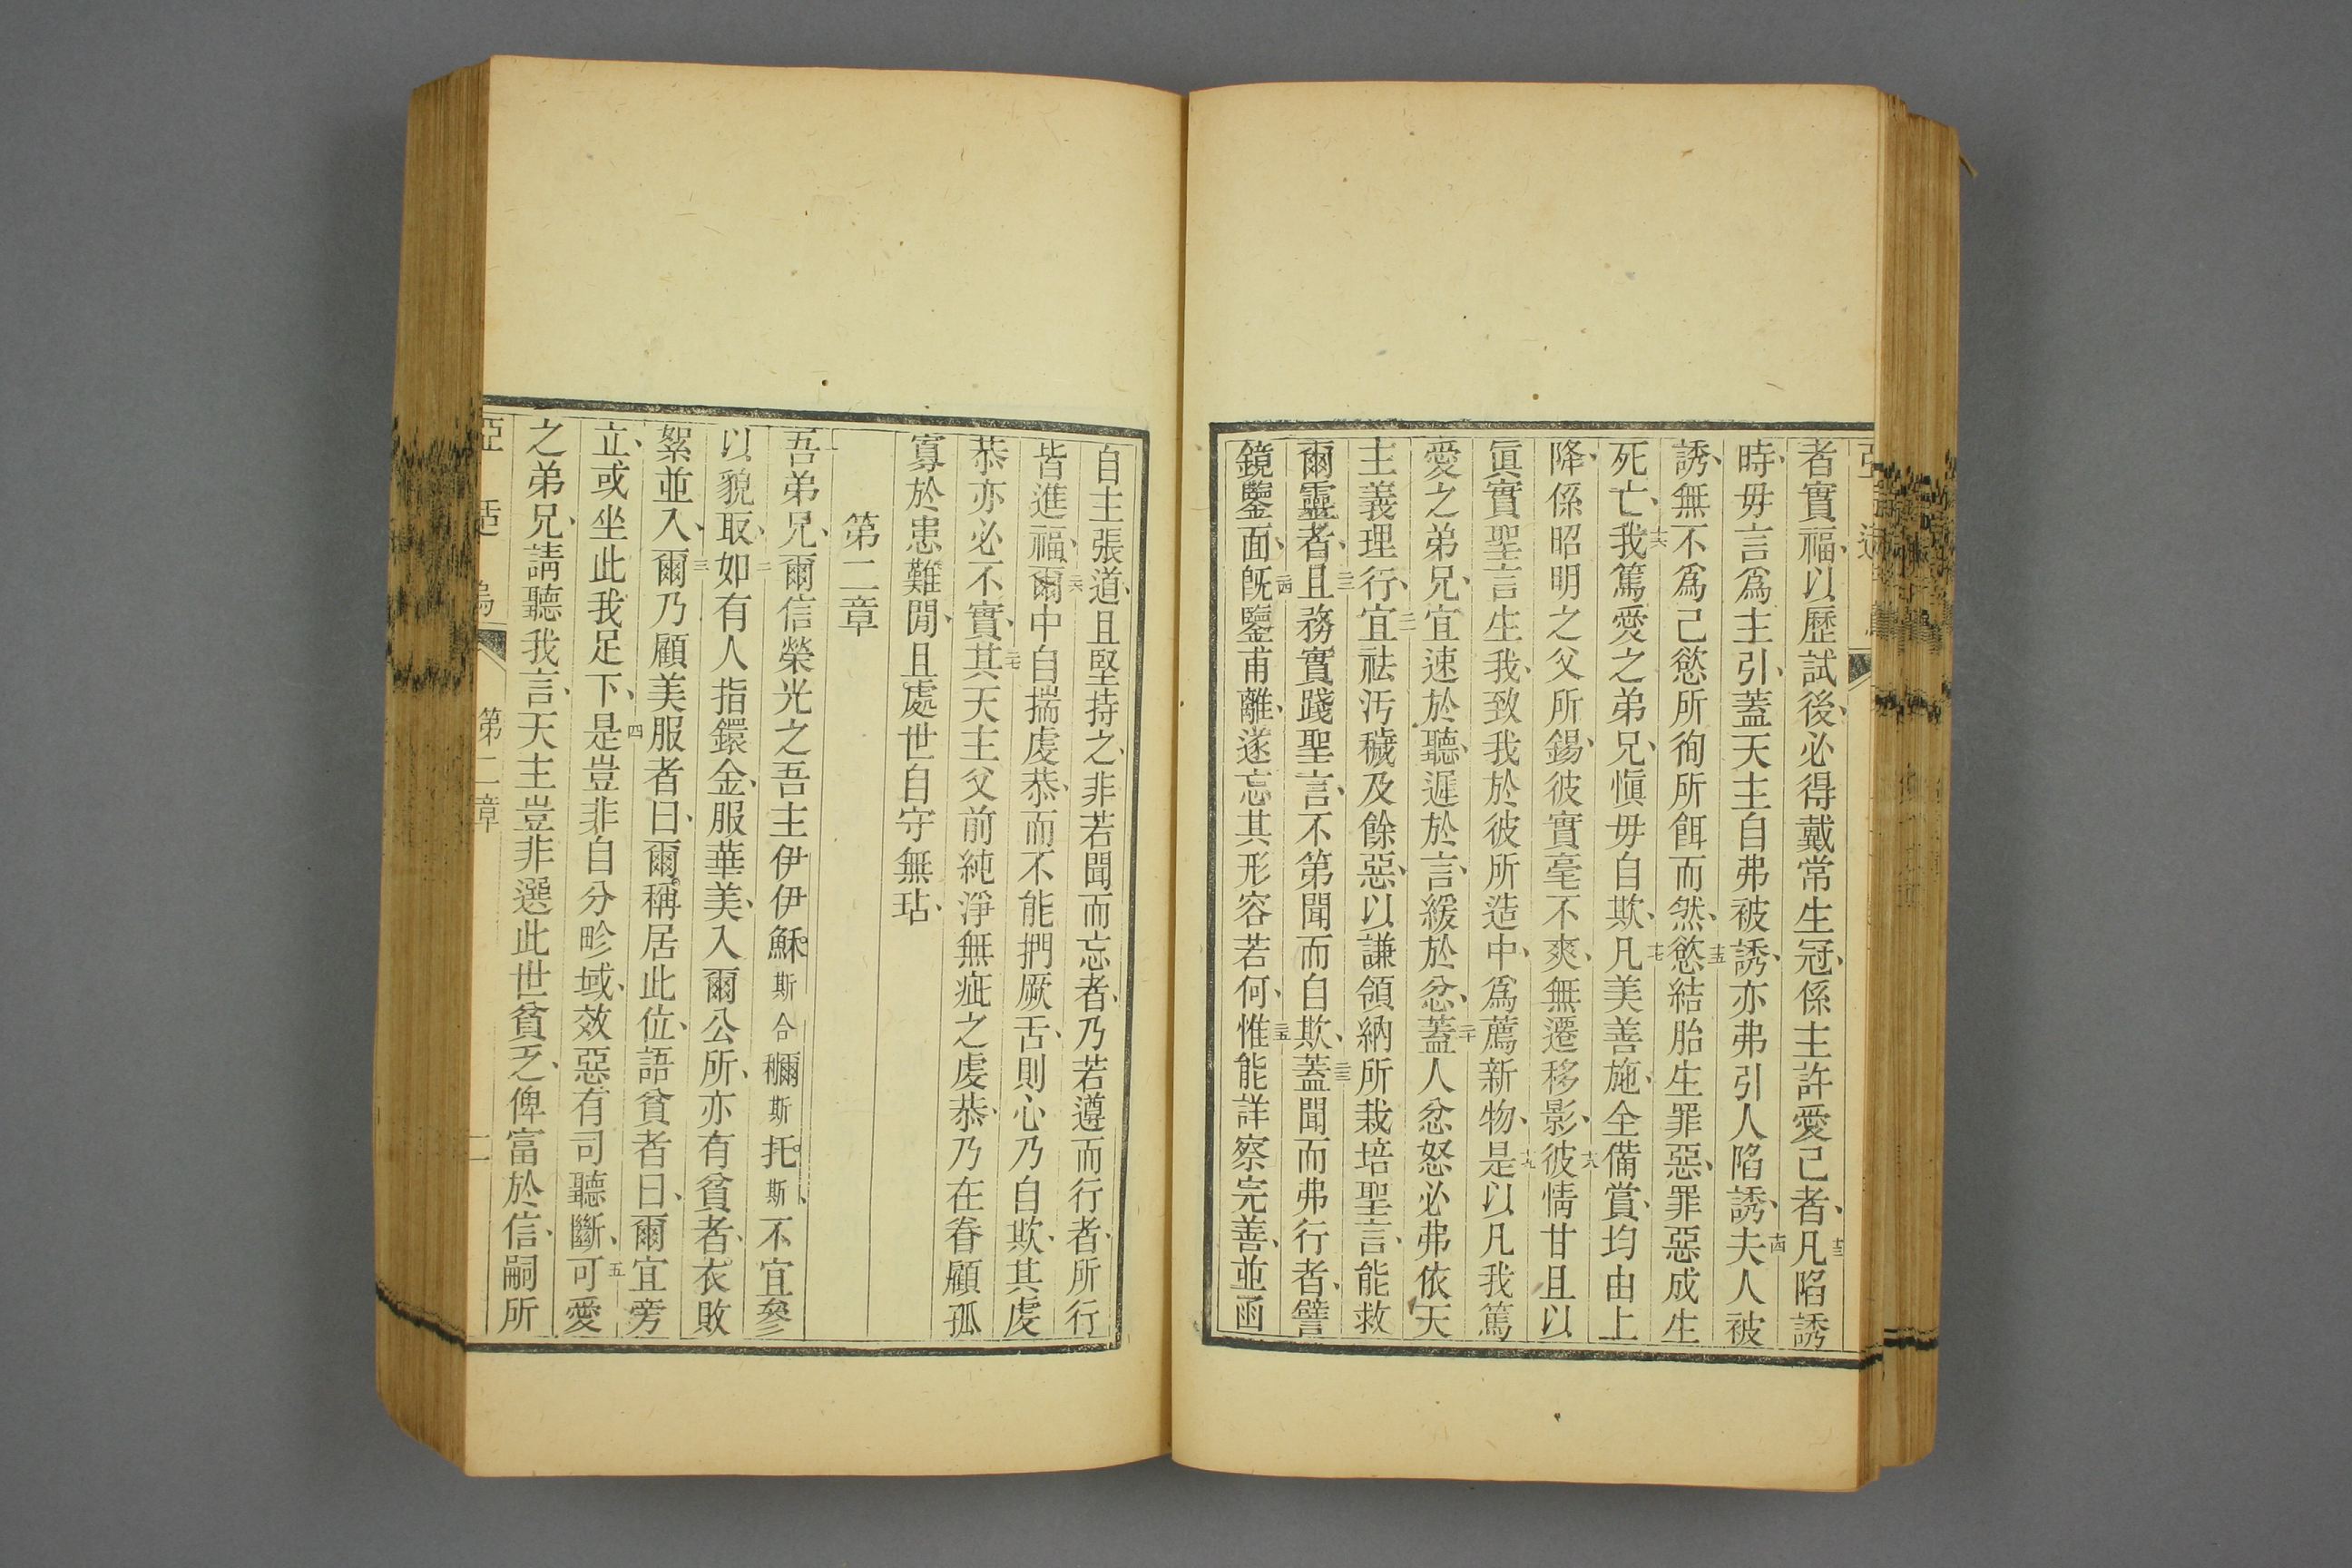 者實福、以歷試後、必得戴常生冠、係主許愛己者、十三凡陷誘
時、毋言爲主引、蓋天主自弗被誘、亦弗引人陷誘、十四夫人被
誘、無不爲己慾所徇所餌而然、十五慾結胎生罪惡、罪惡成生
死亡、十六我篤愛之弟兄、愼毋自欺、十七凡美善施、全備賞、均由上
降、係昭明之父所錫、彼實毫不爽、無遷移影、十八彼情甘且以
眞實聖言生我、致我於彼所造中、爲薦新物、十九是以凡我篤
愛之弟兄、宜速於聽、遲於言、緩於忿、二十蓋人忿怒必弗依天
主義理行、二一宜祛汚穢及餘惡、以謙領納所栽培聖言、能救
爾靈者、二二且務實踐聖言、不第聞而自欺、二三蓋聞而弗行者、譬
鏡鑒面、二四旣鑒甫離、遂忘其形容若何、二五惟能詳察完善、並面
自主張道、且堅持之、非若聞而忘者、乃若遵而行者、所行
皆進福、二六爾中自揣虔恭、而不能捫厥舌、則心乃自欺、其虔
恭亦必不實、二七其天主父前純淨無疵之虔恭、乃在眷顧孤
寡於患難閒、且處世自守無玷、
第二章
一吾弟兄、爾信榮光之吾主伊伊穌斯合穪斯托斯、不宜參
以貌取、二如有人指鐶金、服華美、入爾公所、亦有貧者、衣敗
絮並入、三爾乃顧美服者曰、爾稱居此位、語貧者曰、爾宜旁
立、或坐此我足下、四是豈非自分畛域、效惡有司聽斷、五可愛
之弟兄、請聽我言、天主豈非選此世貧乏、俾富於信、嗣所
第二章
二